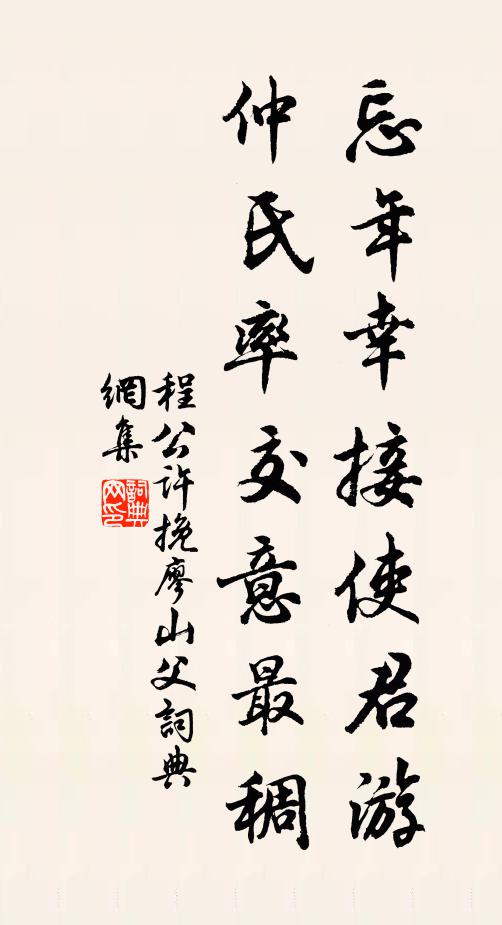 忘年幸接使君游
仲氏率交意最稠
程公许挽廖山父詞典
網集
詞典网印